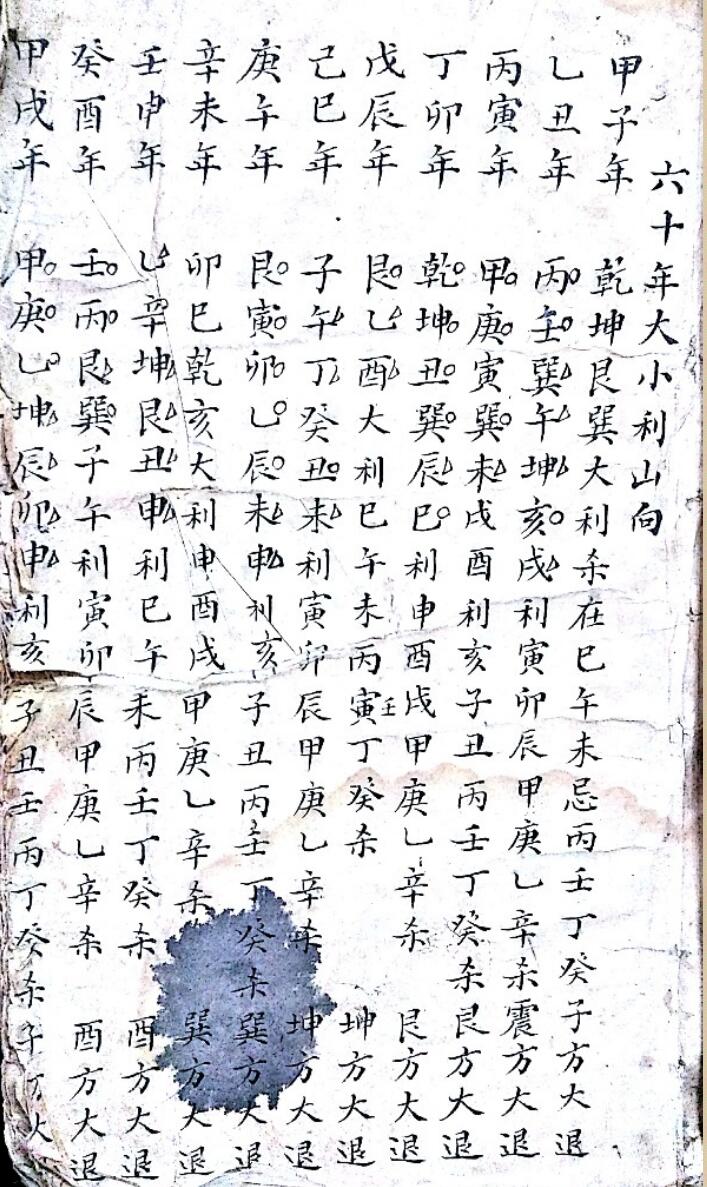 六十年大小利山向
甲子年 乾坤艮巽大利杀在巳午未忌丙壬丁癸子方大退
乙丑年 丙壬巽午坤亥戌利寅卯辰甲庚乙辛杀震方大退
丙寅年 甲庚寅巽未戌酉利亥子丑丙壬丁癸杀艮方大退
丁卯年 乾坤丑巽辰巳利申酉戌甲庚乙辛杀 艮方大退
戊辰年 艮乙酉大利巳午未丙寅壬丁癸杀 坤方大退
己巳年 子午丁癸丑未利寅卯辰甲庚乙辛杀 坤方大退
庚午年 艮寅卯乙辰未申利亥子丑丙壬丁癸杀巽方大退
辛未年 卯巳乾亥大利申酉戌甲庚乙辛杀 巽方大退
壬申年 乙辛坤艮丑申利巳午未丙壬丁癸杀 酉方大退
癸酉年 壬丙艮巽子午利寅卯辰甲庚乙辛杀 酉方大退
甲戌年 甲庚乙坤辰卯申利亥子丑壬丙丁癸杀子方大